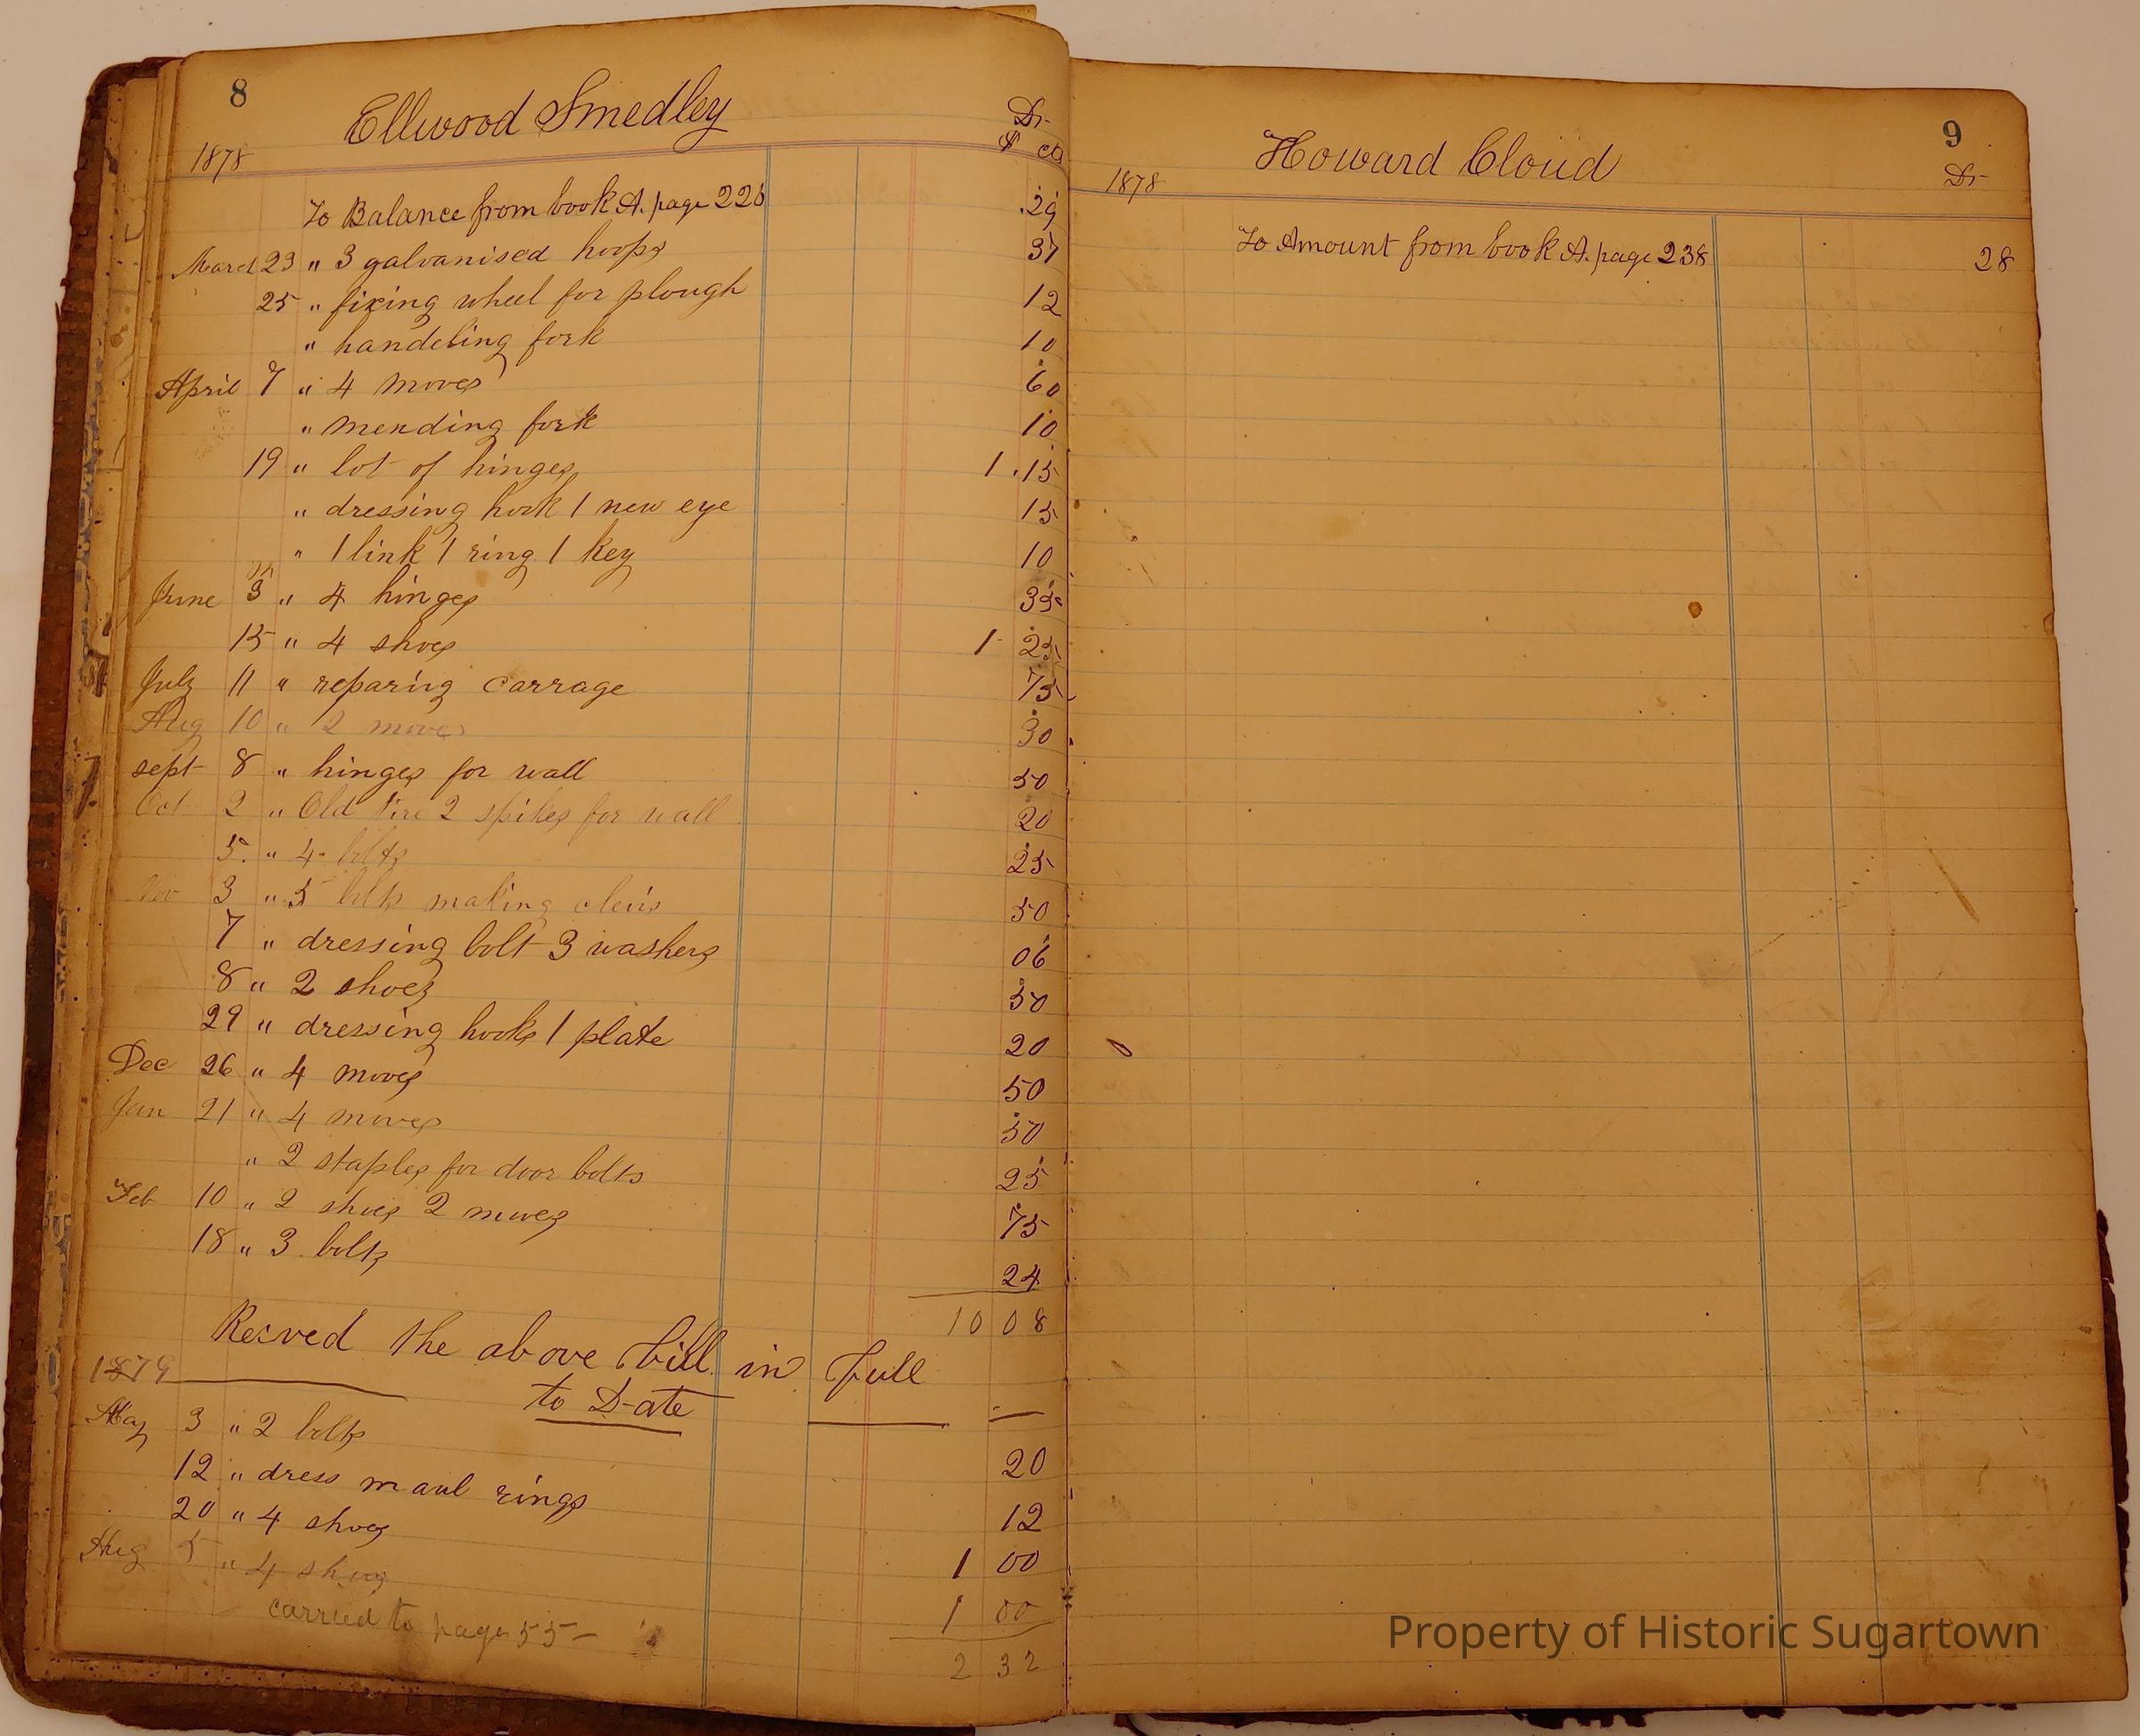 8
Ellwood Smedley
Dr
1878 $ cts
To Balance from book A. page 228 .29
March 23 " 3 galvanised hoops 37
25 " fixing wheel for plough 12
" handeling fork 10
April 7 " 4 moves 60
" mending fork 10
19 " lot of hinges 1.15
" dressing hook 1 new eye 15
" 1 link 1 ring 1 key 10
June 3 " 4 hinges 35
15 " 4 shoes 1 25
July 11 " reparing carrage 75
Aug 10 " 2 moves 30
sept 8 " hinges for wall 50
Oct 2 " Old tire 2 spikes for wall 20
5. " 4 bolts 25
Nov 3 " 5 bolts making clevis 50
7 " dressing bolt 3 washers 06
8 " 2 shoes 50
29 " dressing hooks 1 plate 20
Dec 26 " 4 moves 50
Jan 21 " 4 moves 50
" 2 staples for door bolts 25
Feb 10 " 2 shoes 2 moves 75
18 " 3 bolts 24
10 08
Reived the above bill in full
to Date
1879
May 3 " 2 bolts 20
12 " dress maul rings 12
20 " 4 shoes 1 00
Aug 5 " 4 shoes 1 00
carried to page 55 2 32
9
Howard Cloud
1878 Dr
To Amount from book A. page 238 28
Property of Historic Sugartown